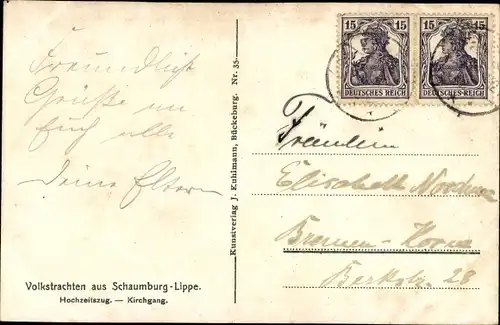 Freundliche
Grüße an
Euch alle
Deine Eltern
Volkstrachten aus Schaumburg-Lippe.
Hochzeitszug. — Kirchgang.
Kunstverlag J. Kuhlmann, Bückeburg. Nr. 35.
15 15
DEUTSCHES REICH
15 15
DEUTSCHES REICH
Fräulein
Elisabeth
Bremen-Horn
28